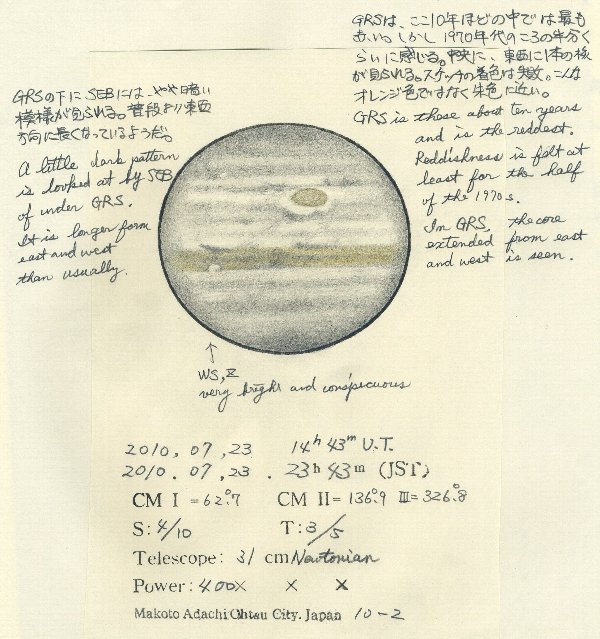 GRSは、ここ10年ほどの中では最も
あかい。しかし1970年代のころの半分く
らいに感じる。中央に、東西に1本の核
が見られる。スケッチの着色は失敗。こんな
オレンジ色ではなく朱色に近い。
GRS is those about ten years
and is the reddest.
Reddishness is felt at
least for the half
of the 1970s.
In GRS, the core
extended from east
and west is seen.
GRSの下にSEBには、やや暗い
模様が見られる。普段より東西
方向に長くなっているようだ。
A little dark pattern
is looked at by SEB
of under GRS.
It is longer form
east and west
than usually.
↑
WS, Z
very bright and conspicuous
2010, 07, 23 14h 43m U.T.
2010. 07, 23. 23h 43m (JST)
CM I = 62.°7 CM II = 136.°9 III = 326.°8
S: 4/10 T: 3/5
Telescope: 31 cm Newtonian
Power: 400× × ×
Makoto Adachi Ohtsu City. Japan 10-2